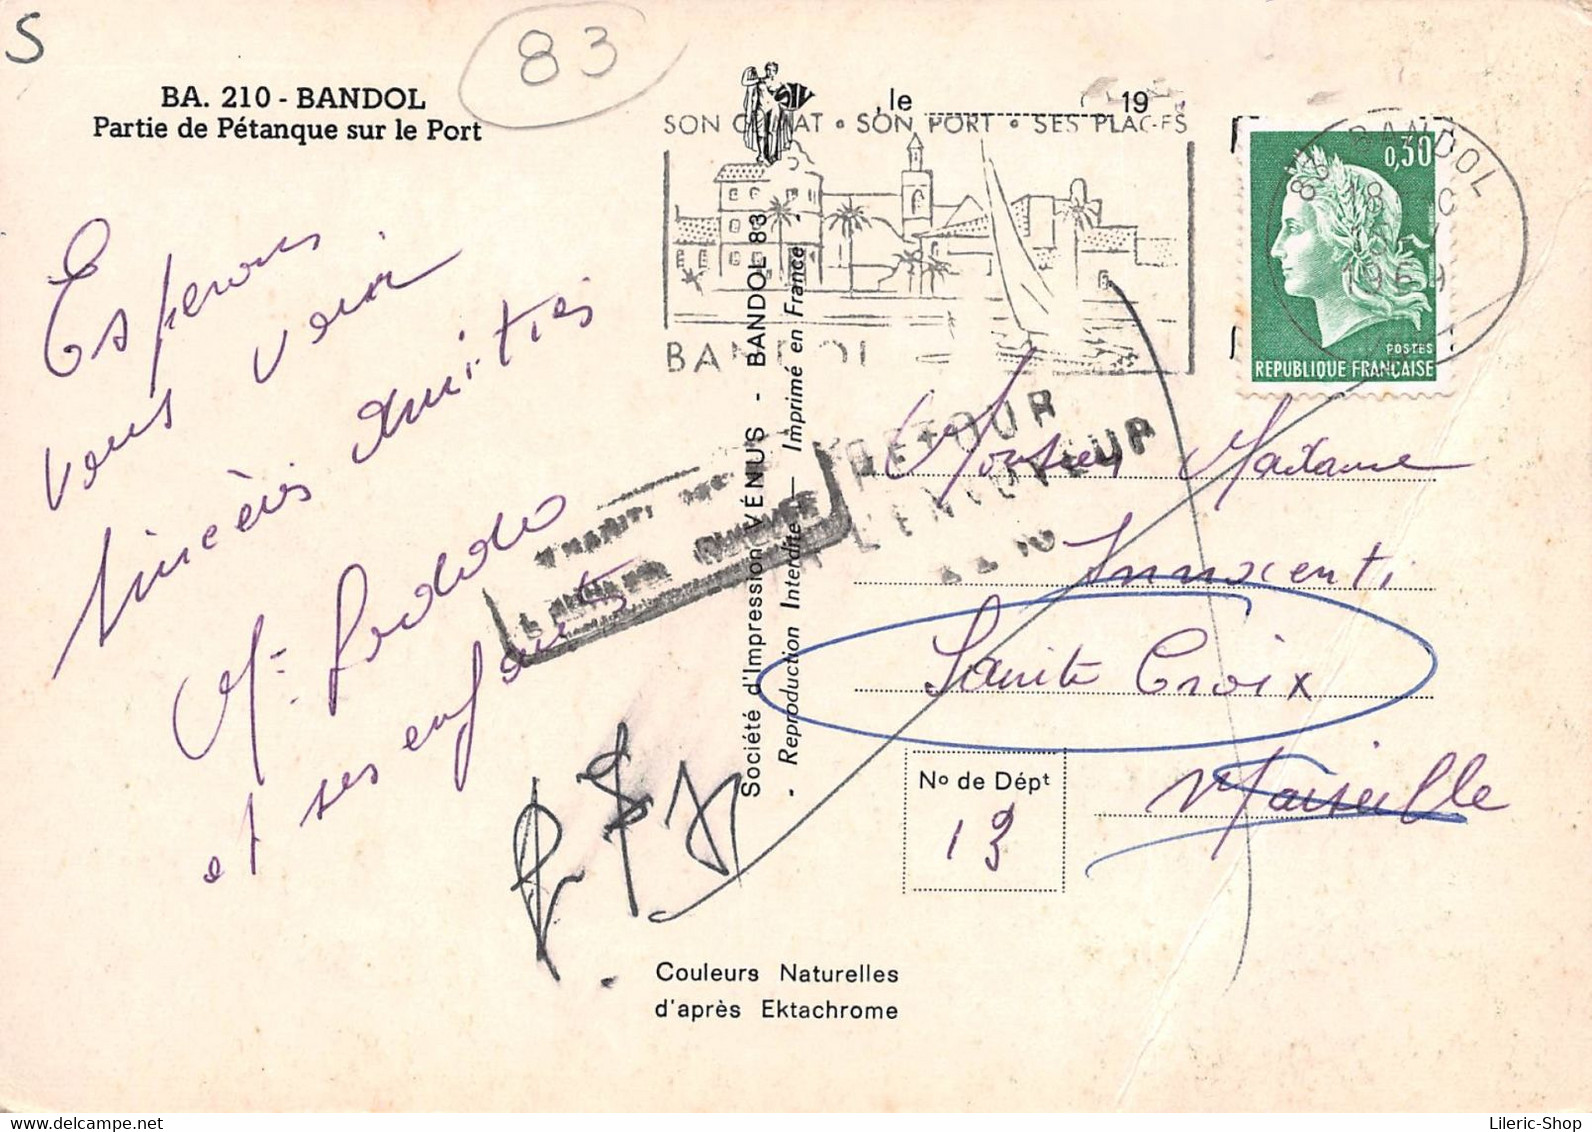 S
83
BA. 210 - BANDOL
Partie de Pétanque sur le Port
, le 19
SON CLIMAT • SON PORT • SES PLAGES
BANDOL
BANDOL
18
1969
0,30
POSTES
REPUBLIQUE FRANÇAISE
Esperons
vous voir
Sincères Amitiés
et ses enfants
Société d'Impression VÉNUS - BANDOL 83
- Reproduction Interdite - Imprimé en France -
RETOUR
A L'ENVOYEUR
Monsieur Madame
Innocenti
Sainte Croix
Marseille
No de Dépt
13
Couleurs Naturelles
d'après Ektachrome
Lileric-Shop